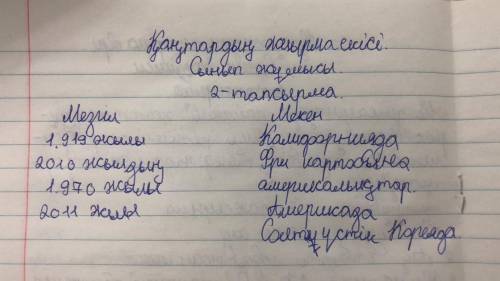 Қаңтардың жиырма екісі.
Сынып жұмысы.
2-тапсырма.
Мезгіл Мекен
1.919 жылы Калифорнияда
2010 жылдың Фри картобына
1.970 жылы америкалықтар.
2011 жылы Америкада
Солтүстік Кореяда